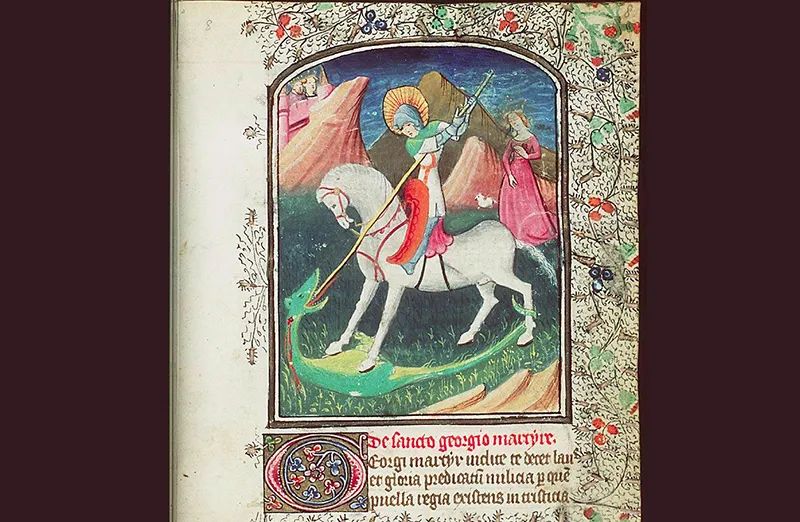 8
De sancto georgio martyre.
Georgi martyr inclite te decet lau
et gloria predicatū milicia p quē
puella regia existens in tristicia